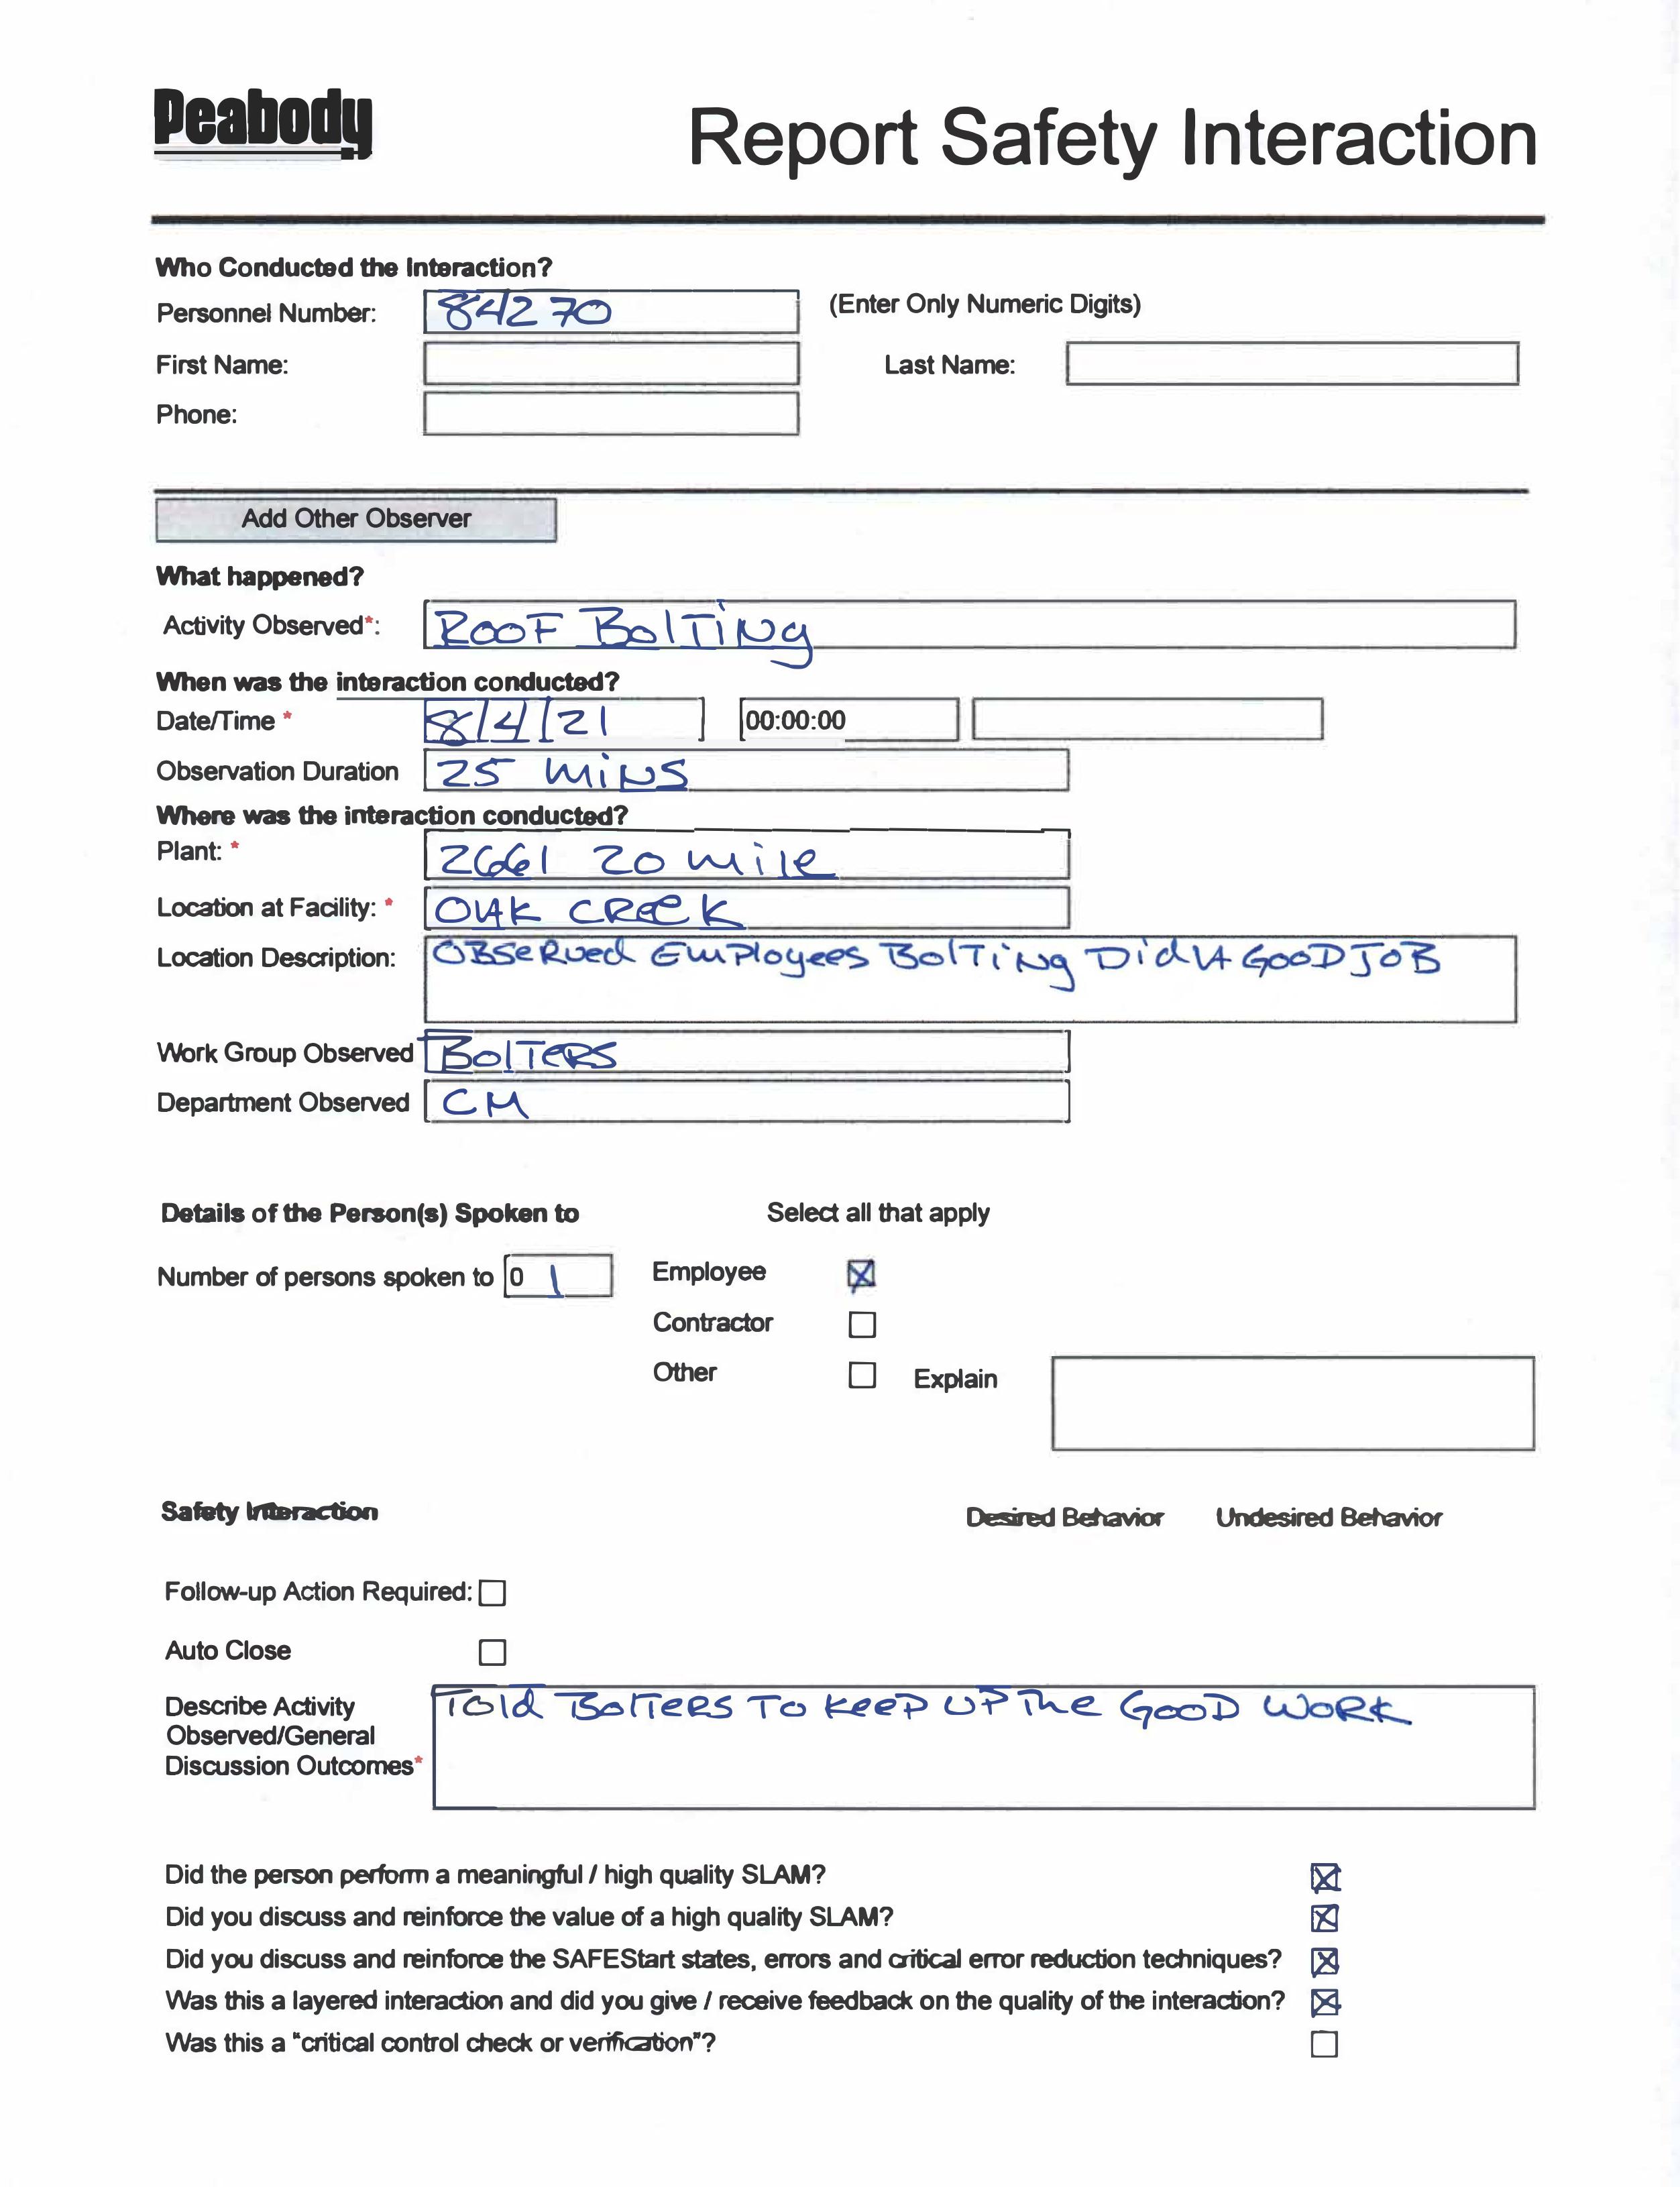 Peabody
Report Safety Interaction
Who Conducted the Interaction?
Personnel Number: 84270 (Enter Only Numeric Digits)
First Name: Last Name:
Phone:
Add Other Observer
What happened?
Activity Observed*: ROOF BolTiNg
When was the interaction conducted?
Date/Time * 8/4/21 00:00:00
Observation Duration 25 MiNS
Where was the interaction conducted?
Plant: * 2661 20 mile
Location at Facility: * OAK CReeK
Location Description: OBSeRved EmPloyees BolTiNg Did A GOOD JOB
Work Group Observed BolTeRS
Department Observed CM
Details of the Person(s) Spoken to Select all that apply
Number of persons spoken to 0 1 Employee
Contractor
Other Explain
Safety Interaction Desired Behavior Undesired Behavior
Follow-up Action Required:
Auto Close
Describe Activity Told BolTeRS To KeeP UP The GOOD WORK
Observed/General
Discussion Outcomes*
Did the person perform a meaningful / high quality SLAM?
Did you discuss and reinforce the value of a high quality SLAM?
Did you discuss and reinforce the SAFEStart states, errors and critical error reduction techniques?
Was this a layered interaction and did you give / receive feedback on the quality of the interaction?
Was this a "critical control check or verification"?